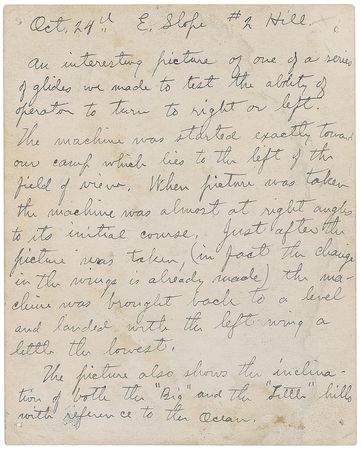 Oct. 24th E. Slope #2 Hill.
An interesting picture of one of a series
of glides we made to test the ability of
operator to turn to right or left.
The machine was started exactly toward
our camp which lies to the left of the
field of view. When picture was taken
the machine was almost at right angles
to its initial course. Just after the
picture was taken, (in fact the change
in the wings is already made) the ma-
chine was brought back to a level
and landed with the left wing a
little the lowest.
The picture also shows the inclina-
tion of both the "Big" and the "Little" hills
with reference to the Ocean.